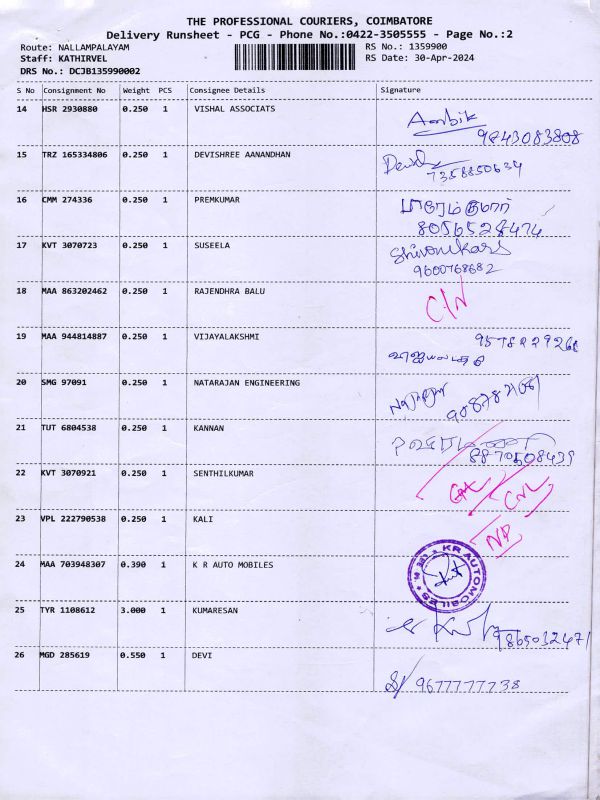 THE PROFESSIONAL COURIERS, COIMBATORE
Delivery Runsheet - PCG - Phone No.:0422-3505555 - Page No.:2
Route: NALLAMPALAYAM RS No.: 1359900
Staff: KATHIRVEL RS Date: 30-Apr-2024
DRS No.: DCJB135990002
S No Consignment No Weight PCS Consignee Details Signature
14 HSR 2930880 0.250 1 VISHAL ASSOCIATS
9843083808
15 TRZ 165334806 0.250 1 DEVISHREE AANANDHAN
7358850634
16 CMM 274336 0.250 1 PREMKUMAR
8056528474
17 KVT 3070723 0.250 1 SUSEELA
9600768682
18 MAA 863202462 0.250 1 RAJENDHRA BALU
19 MAA 944814887 0.250 1 VIJAYALAKSHMI
9578229268
20 SMG 97091 0.250 1 NATARAJAN ENGINEERING
21 TUT 6804538 0.250 1 KANNAN
8870508439
22 KVT 3070921 0.250 1 SENTHILKUMAR
23 VPL 222790538 0.250 1 KALI
24 MAA 703948307 0.390 1 K R AUTO MOBILES
KR AUTOMOBILES
25 TYR 1108612 3.000 1 KUMARESAN
7865032471
26 MGD 285619 0.550 1 DEVI
9677777738